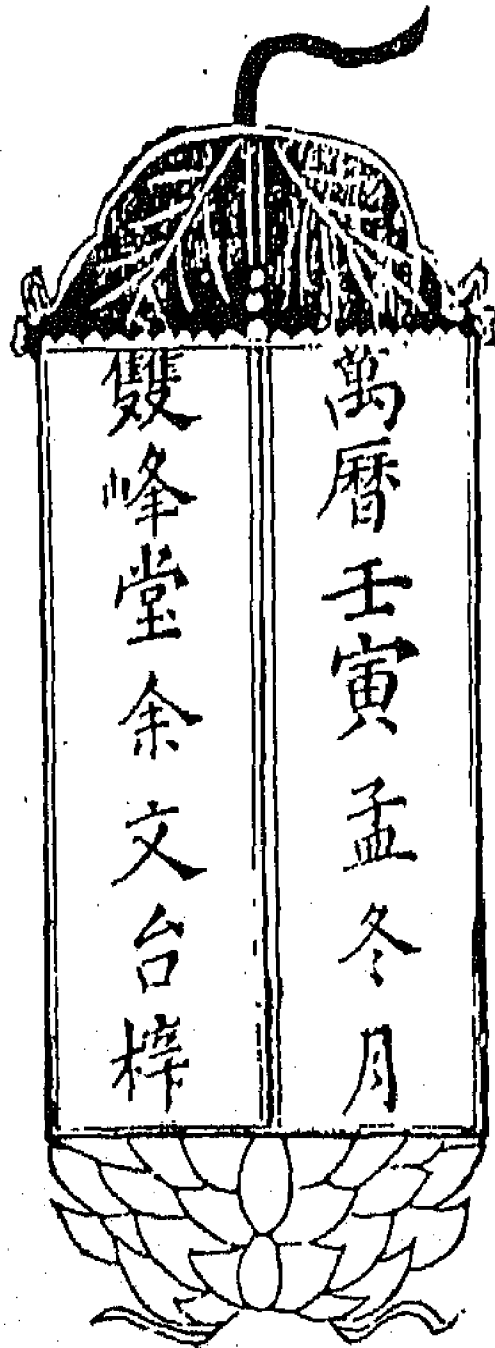 萬曆壬寅孟冬月
雙峰堂余文台梓